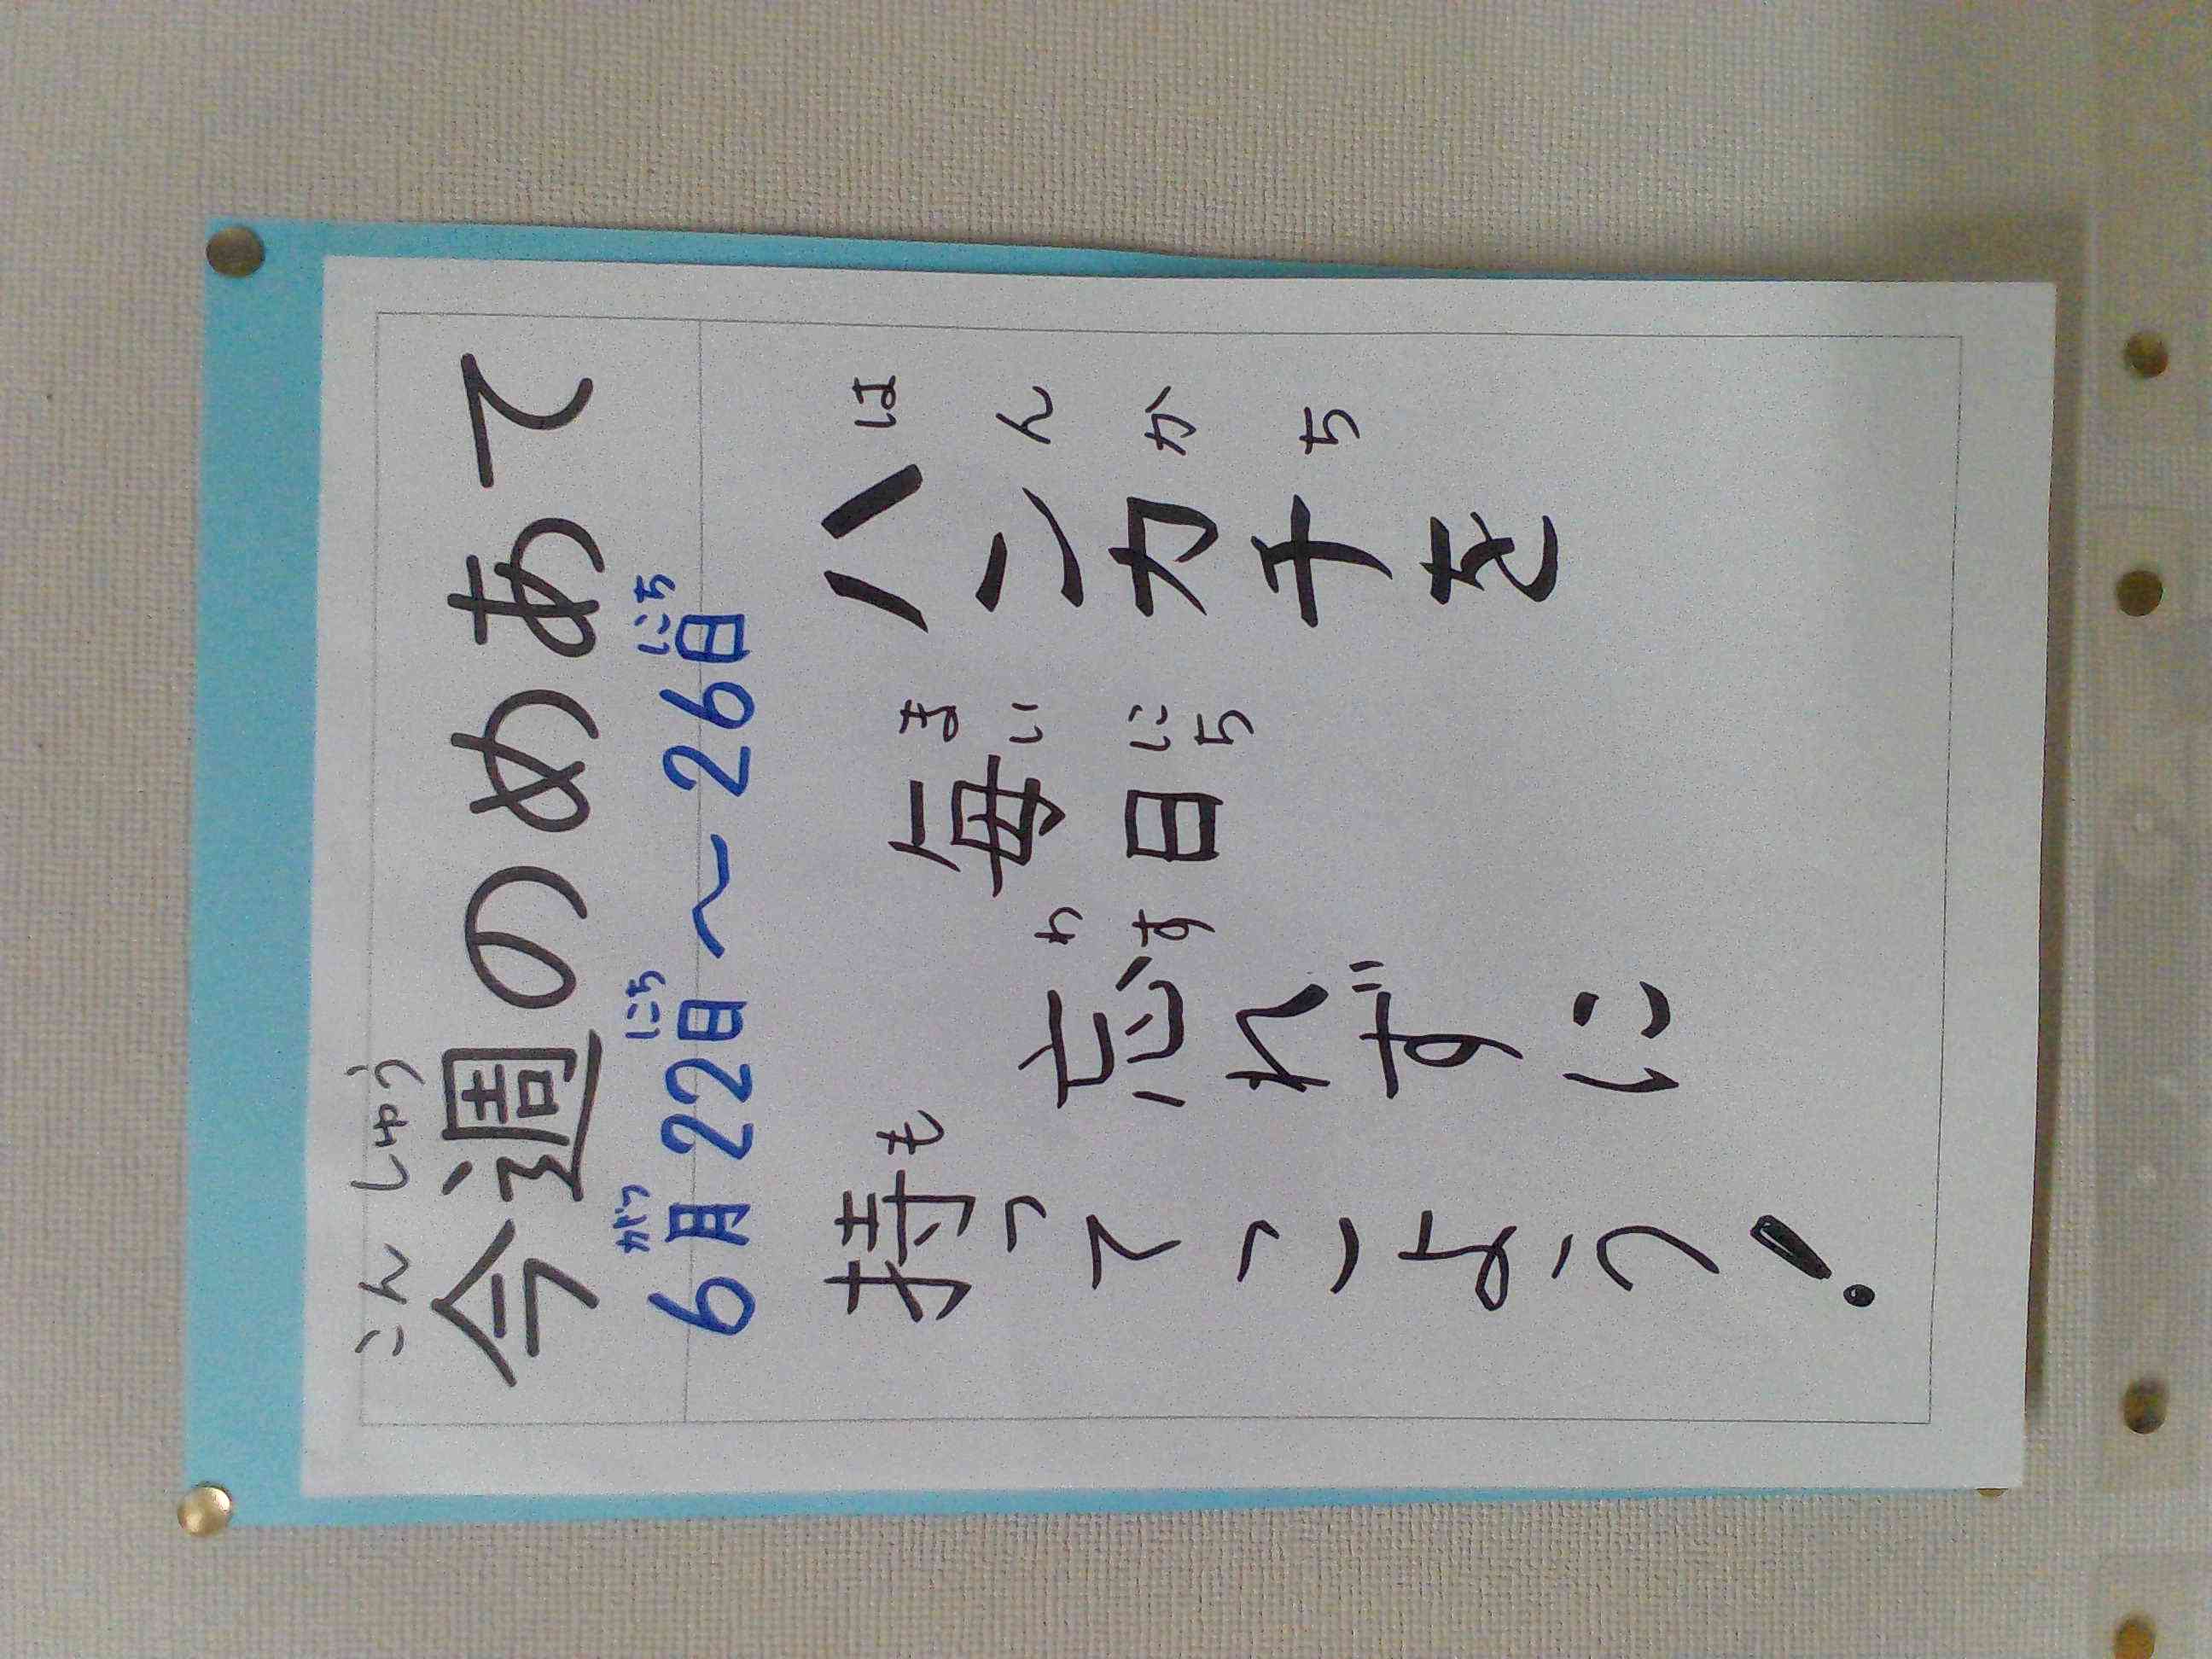 こんしゅう
今週のめあて
がつ にち にち
6月22日〜26日
はんかち
ハンカチを
まいにち
毎日
わす
忘れずに
も
持ってこよう!